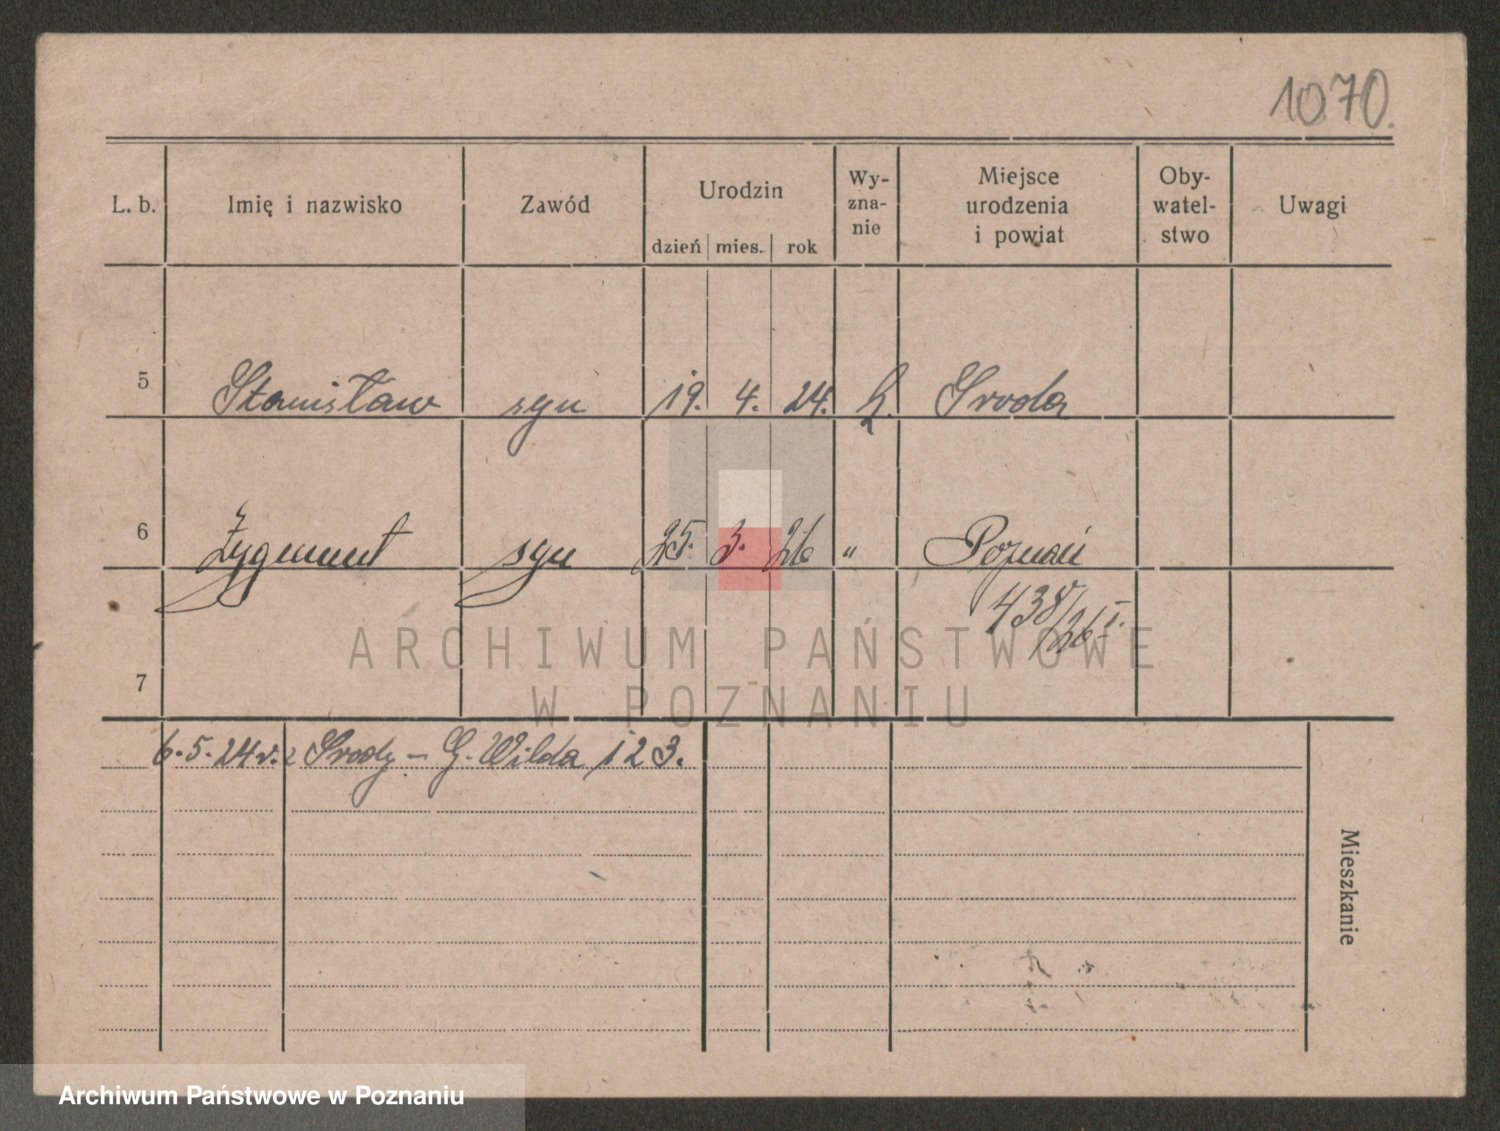 1070.
L. b. Imię i nazwisko Zawód Urodzin dzień mies. rok Wy- zna- nie Miejsce urodzenia i powiat Oby- watel- stwo Uwagi
5 Stanisław syn 19. 4. 24. Sroda
6 Zygmunt syn 25. 3. 26 " Poznań
438/26 I.
7
6.5.24 r. z Srody - G. Wilda 123.
Mieszkanie
ARCHIWUM PAŃSTWOWE
W POZNANIU
Archiwum Państwowe w Poznaniu